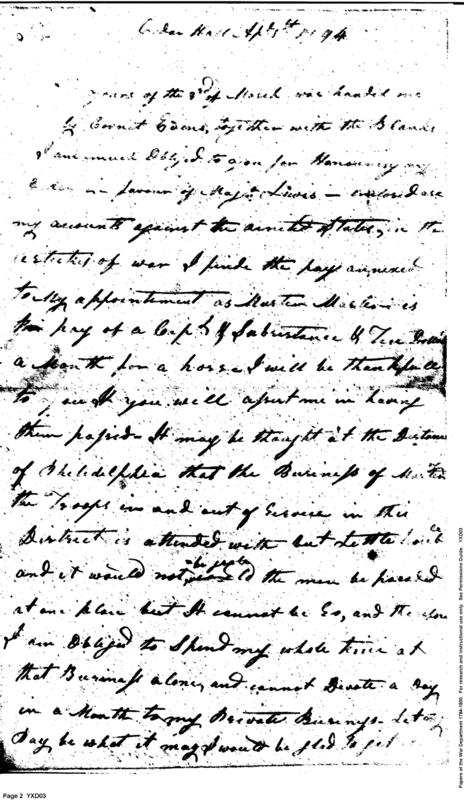 Cedar Hall Apl 1st 1794
yours of the 3rd of March was handed me
by Cornet Evens, together with the Blanks
I am much Obliged to you for Honouring my
in favour of Majr Lewis — inclosed are
my accounts against the united States, in the
articles of war I finde the pay annexed
to My appointement as Muster Master is
the pay of a Capt & Subsistance & Ten Dollars
a Month for a horse I will be thankfull
to you If you will assist me in having
them passed. It may be thought at the Distance
of Philidelphia that the Buisness of Mustering
the Troops in and out of Service in this
District is attended with but Little
and it would not be the men be passed
at one place but It cannot be So, and
I am Obliged to Spend my whole time at
that Buisness alone, and cannot Divote a Day
in a Month to my Private Buisness. Let my
Pay be what it may I would be gled to get
Page 2 YXD03
Papers of the War Department 1784-1800. For research and instructional use only. See Permissions Guide. YXD03